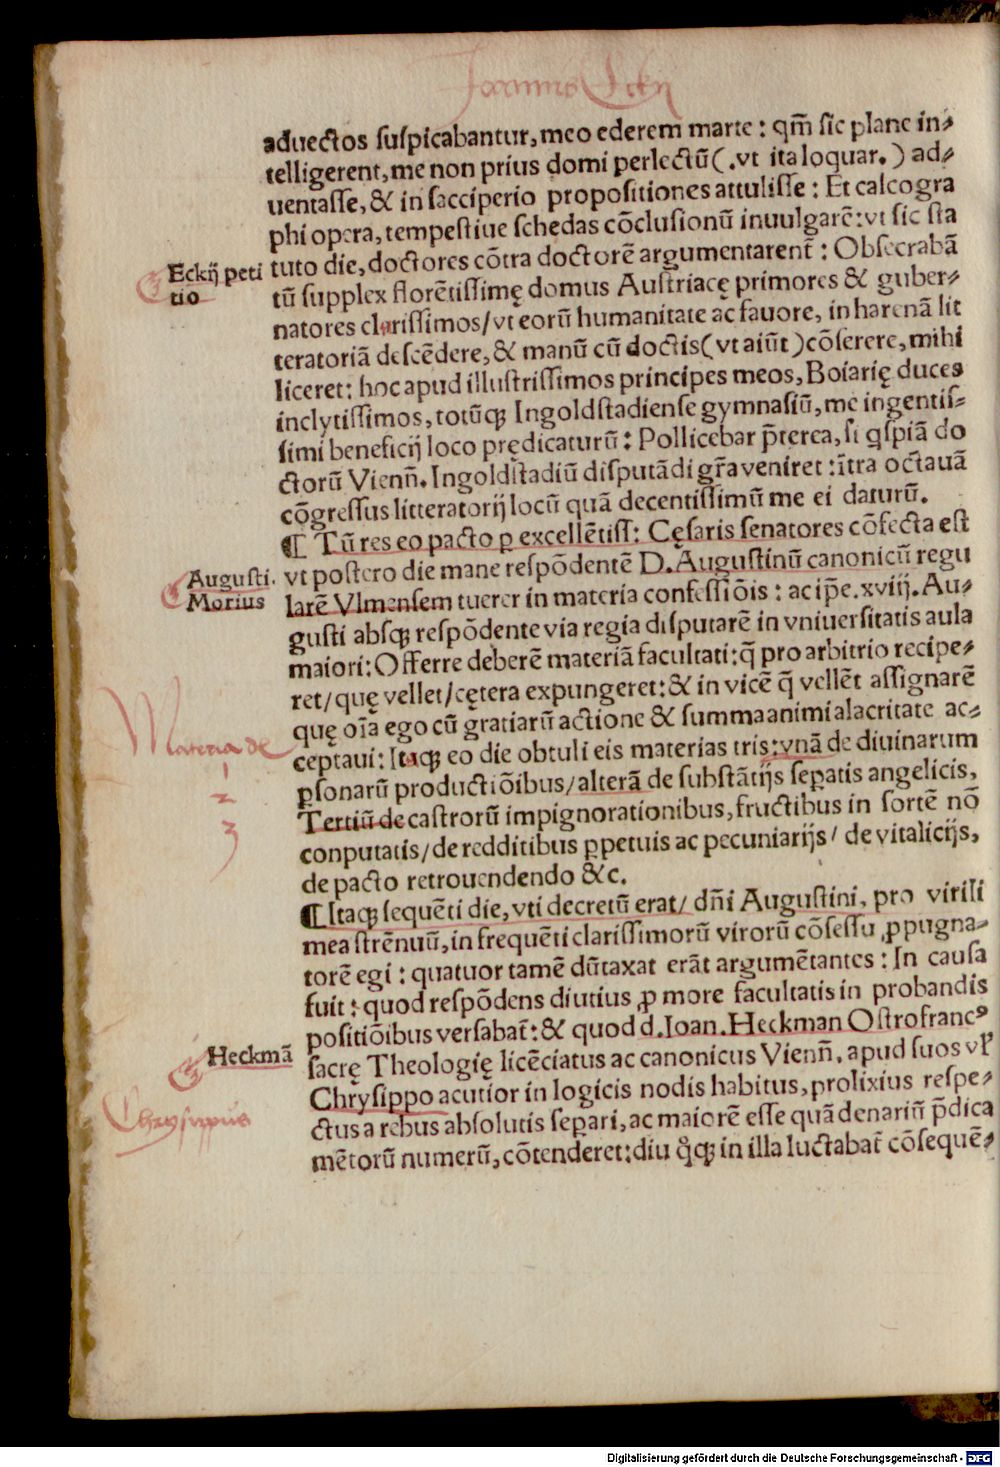 Joannis Eckij
aduectos suspicabantur, meo ederem marte: qm̃ sic plane in-
telligerent, me non prius domi perlectũ(.vt ita loquar.) ad-
uentasse, & in sacciperio propositiones attulisse: Et calcogra
phi opera, tempestiue schedas cõclusionũ inuulgarẽ: vt sic sta
Eckij peti
tio
tuto die, doctores cõtra doctorẽ argumentarent̃: Obsecrabã
tũ supplex florẽtissimę domus Austriacę primores & guber-
natores clarissimos/vt eorũ humanitate ac fauore, in harenã lit
teratoriã descẽdere, & manũ cũ doctis(vt aiũt)cõserere, mihi
liceret: hoc apud illustrissimos principes meos, Boiarię duces
inclytissimos, totũqꝫ Ingoldstadiense gymnasiũ, me ingentis-
simi beneficij loco prędicaturũ: Pollicebar p̃terea, si qspiã do
ctorũ Vienñ. Ingoldstadiũ disputãdi gr̃a veniret: ĩtra octauã
cõgressus litteratorij locũ quã decentissimũ me ei daturũ.
¶ Tũ res eo pacto ꝑ excellẽtiss: Cęsaris senatores cõfecta est
Augusti.
Morius
vt postero die mane respõdentẽ D. Augustinũ canonicũ regu
larẽ Vlmensem tuerer in materia confessiõis: ac ip̃e. xviij. Au-
gusti absqꝫ respõdente via regia disputarẽ in vniuersitatis aula
maiori: Offerre deberẽ materiã facultati: q̃ pro arbitrio recipe-
ret/quę vellet/cętera expungeret: & in vicẽ q̃ vellẽt assignarẽ
quę oĩa ego cũ gratiarũ actione & summa animi alacritate ac-
Materia de
1
2
3
ceptaui: Itaqꝫ eo die obtuli eis materias tris: vnã de diuinarum
ꝑsonarũ productiõibus/alterã de substãtijs seꝑatis angelicis,
Tertiũ de castrorũ impignorationibus, fructibus in sortẽ nõ
conputatis/de redditibus ꝑpetuis ac pecuniarijs/ de vitalicijs,
de pacto retrouendendo &c.
¶ Itaqꝫ sequẽti die, vti decretũ erat/ dñi Augustini, pro virili
mea strẽnuũ, in frequẽti clarissimorũ virorũ cõsessu ꝓpugna-
torẽ egi: quatuor tamẽ dũtaxat erãt argumẽtantes: In causa
fuit: quod respõdens diutius ꝓ more facultatis in probandis
positiõibus versabat̃: & quod d. Ioan. Heckman Ostrofrancꝰ
Heckmã
sacrę Theologię licẽciatus ac canonicus Vienñ. apud suos vl̕
Chrysippus
Chrysippo acutior in logicis nodis habitus, prolixius respe-
ctus a rebus absolutis seꝑari, ac maiorẽ esse quã denariũ p̃dica
mẽtorũ numerũ, cõtenderet: diu q̊qꝫ in illa luctabat̃ cõsequẽ-
Digitalisierung gefördert durch die Deutsche Forschungsgemeinschaft - DFG